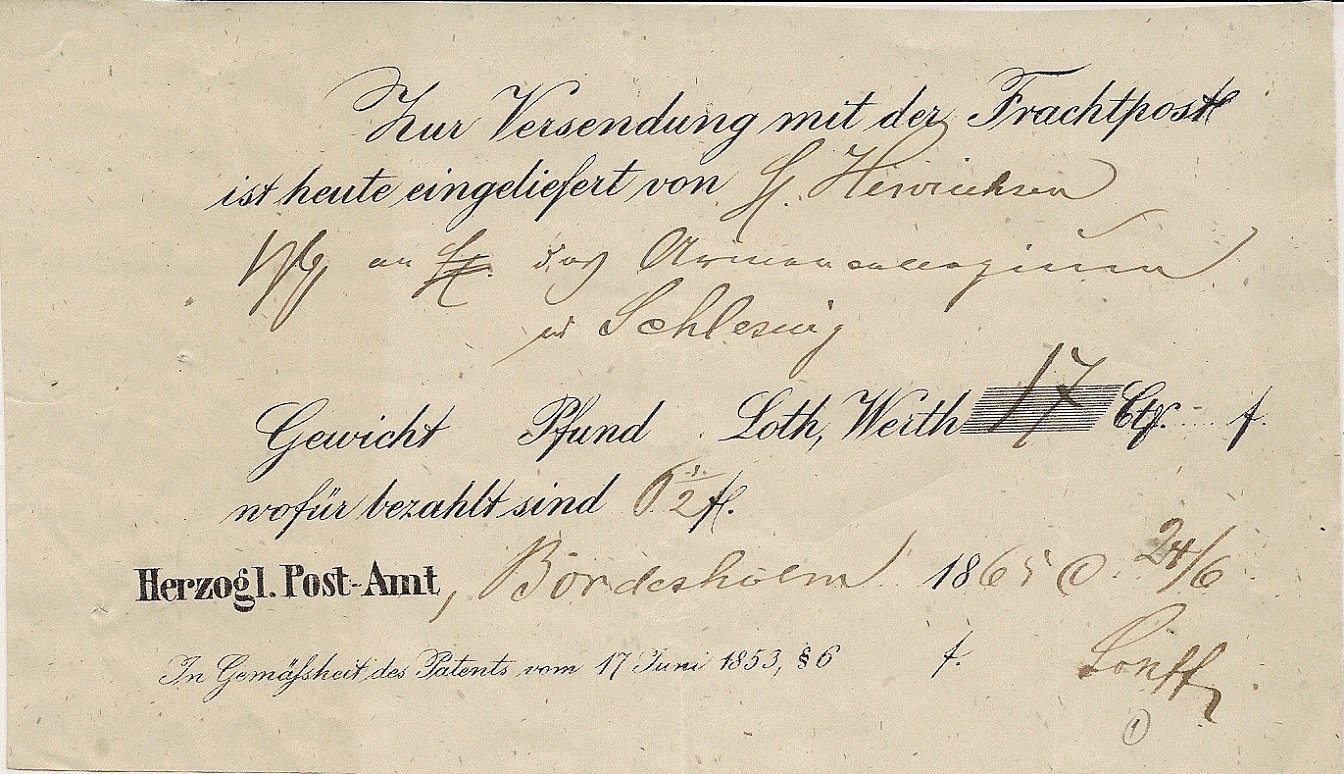 Zur Versendung mit der Frachtpost
ist heute eingeliefert von H. Hinrichsen
an das Armencollegium
in Schleswig
Gewicht Pfund Loth, Werth 17 Ctß. ß.
wofür bezahlt sind 6 1/2 ß.
Herzogl. Post-Amt, Bordesholm 1865 24/6
In Gemäſsheit des Patents vom 17 Juni 1853, § 6 ß.
1